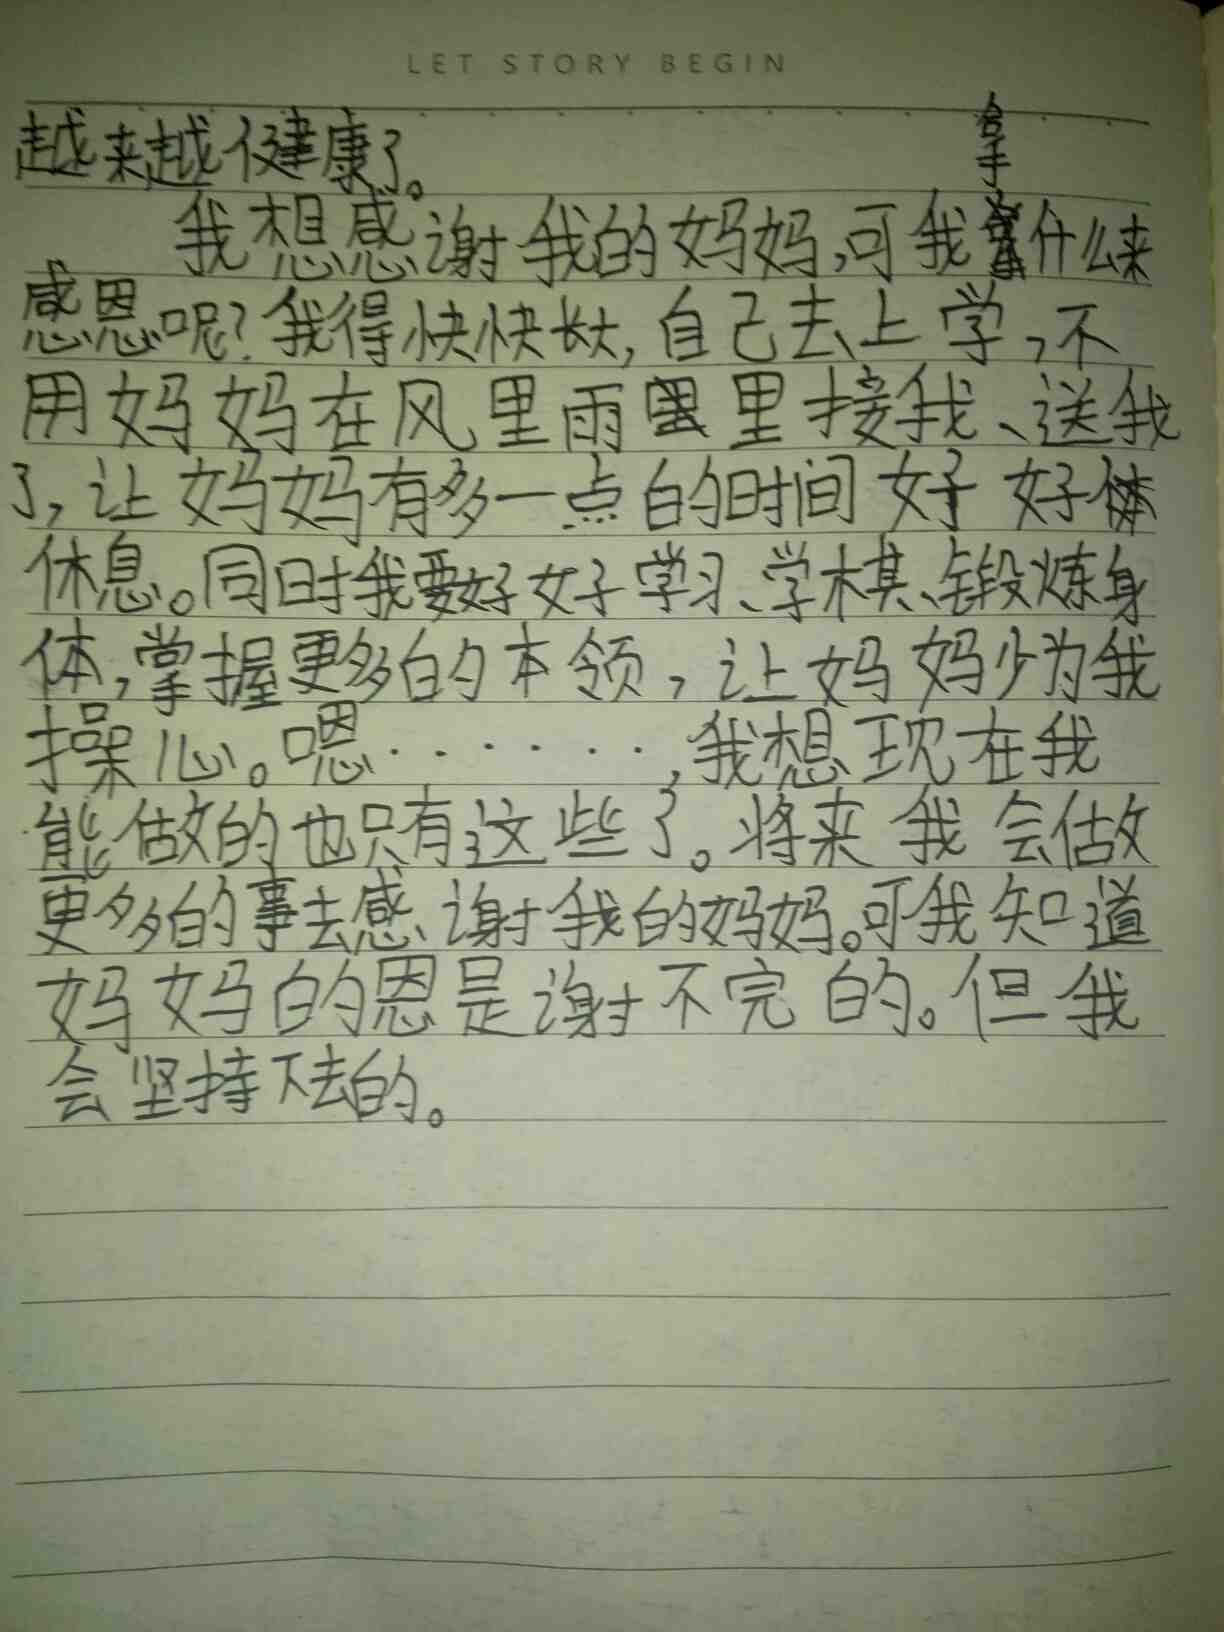 LET STORY BEGIN
越来越健康了。
我想感谢我的妈妈,可我拿什么来
感恩呢?我得快快长大,自己去上学,不
用妈妈在风里雨里接我、送我
了,让妈妈有多一点的时间好好
休息。同时我要好好学习、学棋、锻炼身
体,掌握更多的本领,让妈妈少为我
操心。嗯······,我想现在我
能做的也只有这些了。将来我会做
更多的事去感谢我的妈妈。可我知道
妈妈的恩是谢不完的。但我
会坚持下去的。